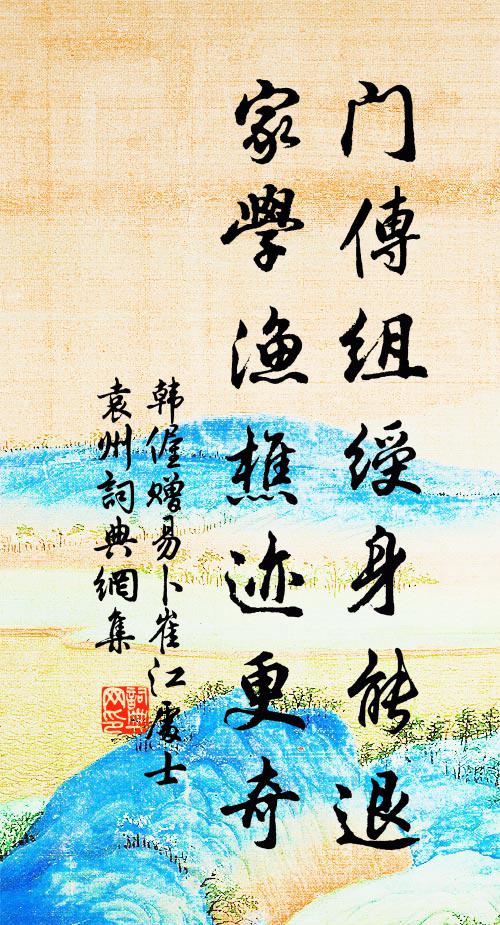 门傳組綬身能退
家學漁樵迹更奇
韩偓赠易卜崔江處士
袁州詞典網集